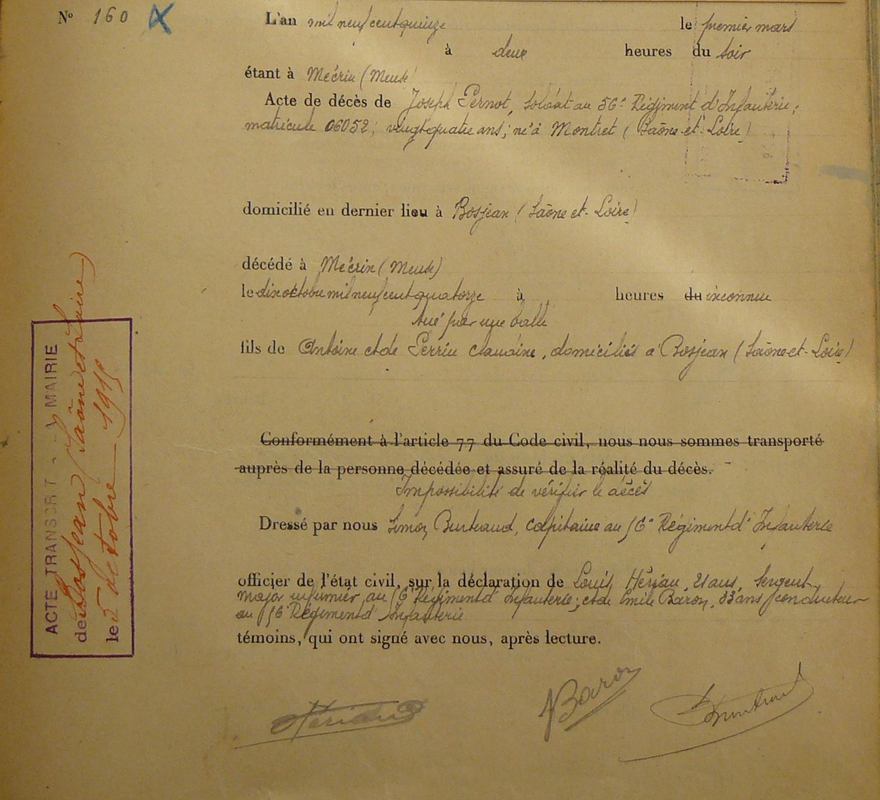 N° 160
L'an mil neuf cent quinze le premier mars
à deux heures du soir
étant à Mécrin (Meuse)
Acte de décès de Joseph Pernot, soldat au 56e Régiment d'Infanterie;
matricule 06052; vingt quatre ans; né à Montret (Saône-et-Loire)
domicilié en dernier lieu à Bosjean (Saône et-Loire)
décédé à Mécrin (Meuse)
le dix octobre mil neuf cent quatorze à heures du inconnue
tué par une balle
fils de Antoine et de Perrin Claudine, domiciliés à Bosjean (Saône-et-Loire)
Conformément à l'article 77 du Code civil, nous nous sommes transporté
auprès de la personne décédée et assuré de la réalité du décès.
Impossibilité de vérifier le décès
Dressé par nous Simon, Capitaine au 56e Régiment d'Infanterie
officier de l'état civil, sur la déclaration de Louis 21 ans, Sergent
major infirmier au 56e Régiment d'Infanterie; et de Emile Baron, 33 ans, conducteur
au 56e Régiment d'Infanterie
témoins, qui ont signé avec nous, après lecture.
Baron
ACTE TRANSCRIT MAIRIE
de Bosjean (Saône et Loire)
le 5 octobre 1915